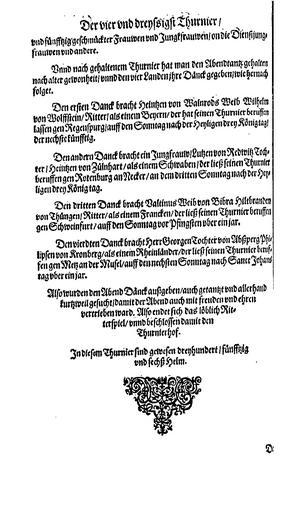 Der vier vnd dreyssigst Thurnier/
vnd fünfftzig geschmückter Frauwen vnd Jungkfrauwen/on die Dienstjung-
frauwen vnd andere.
Vnnd nach gehaltenem Thurnier hat man den Abendtantz gehalten
nach alter gewonheit/ vnnd den vier Landen ihre Dänck gegeben/wie hernach
folget.
Den ersten Danck bracht Heintzen von Walnrods Weib Wilhelm
von Wolffstein/Ritter/als einem Beyern/der hat seinen Thurnier beruffen
lassen gen Regenspurg/auff den Sonntag nach der Heyligen drey König tag
der nechste künfftig.
Den andern Danck bracht ein Jungfrauw/Lutzen von Redwitz Toch-
ter/Heintzen von Zülnhart/als einem Schwaben/der ließ seinen Thurnier
beruffen gen Rotenburg an Necker/an dem dritten Sonntag nach der Hey-
ligen drey König tag.
Den dritten Danck bracht Valtinus Weib von Bibra Hilebranden
von Thüngen/Ritter/als einem Francken/der ließ seinen Thurnier beruf-
fen gen Schweinfurt/auff den Sonntag vor Pfingsten vber ein jar.
Den vierdten Danck bracht Herr Georgen Tochter von Absperg Phi-
lipsen von Kronberg/als einem Rheinländer/der ließ seinen Thurnier beruf-
fen gen Metz an der Musel/auff den nechsten Sonntag nach Sanct Johans
tag vber ein jar.
Also wurden den Abend Dänck außgeben/auch getantzt vnd allerhand
kurtzweil gesucht/damit der Abend auch mit freuden vnd ehren
vertrieben ward. Also endet sich das löblich Rit-
terspiel/ vnnd beschlossen damit den
Thurnierhof.
In diesem Thurnier sind gewesen dreyhundert/fünfftzig
vnd sechß Helm.